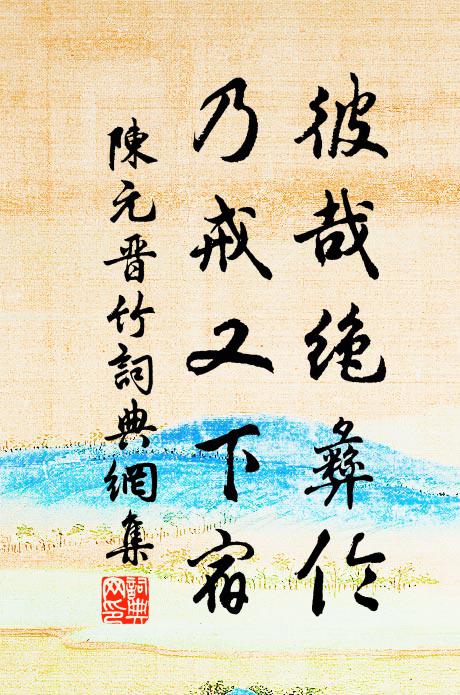 彼哉绝彝伦
乃戒又下宿
陳元晋竹詞典網集
詞典网印